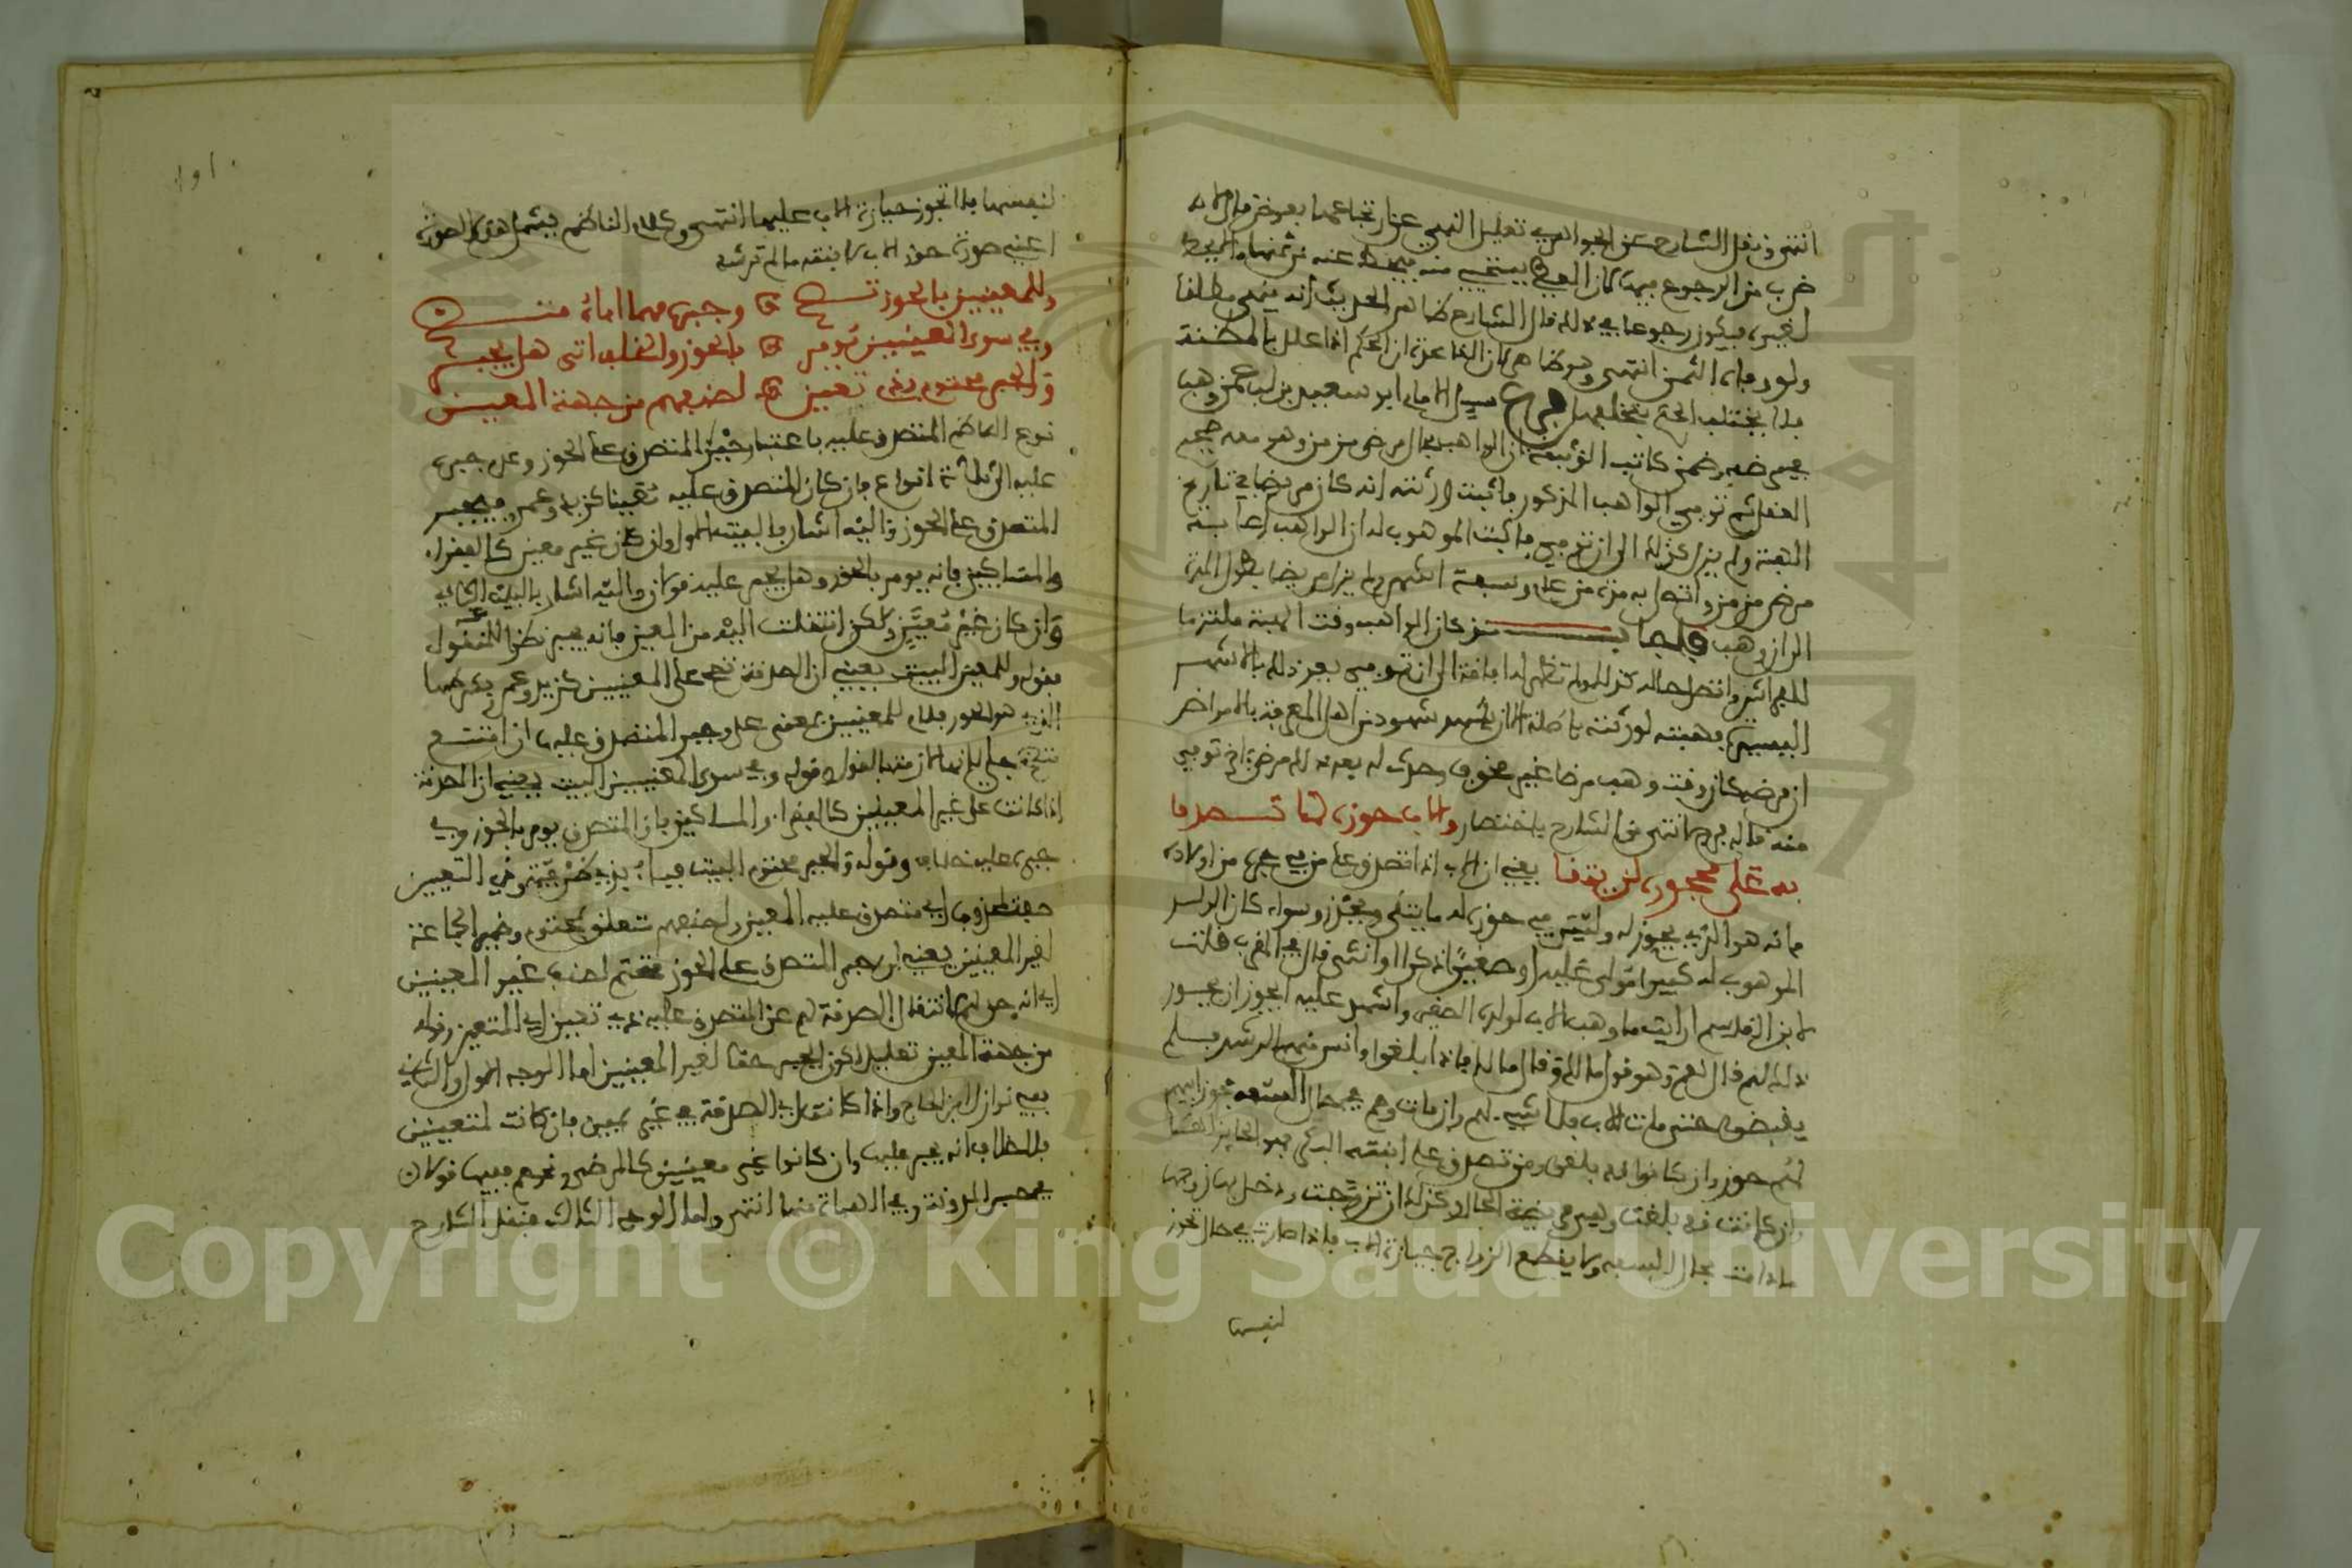 انتهى ونقل الشارح عن الجواهر في تعليل النهي عن ارتجاعها بعوض قال لانه
ضرب من الرجوع فيها لان المعطى يستحيي منه فيحط عنه من ثمنها او يحط
لغيره فيكون رجوعا في ذلك قال الشارح ظاهر الحديث انه ينهى مطلقا
ولو رد مليا الثمن انتهى وهو ظاهر لان القاعدة ان الحكم اذا علل بالمظنة
فلا يختلف الحكم بتخلفها فرع سيل الامام ابو سعيد بن لب عمن وهب
في مرضه وضمن كاتب الوثيقة ان الواهب بحال مرض مزمن وهو معه صحيح
العقل ثم توفي الواهب المذكور فاثبت ورثته انه كان مريضا في تاريخ
الهبة ولم يزل كذلك الى ان توفي فاثبت الموهوب له ان الواهب اصابه
مرض مزمن واتصل به مدة من عام وسبعة اشهر ولم يزل مريضا بطول المدة
الى ان وهب فاجاب من كان الواهب وقت الهبة ملتزما
للفراش واتصل حاله كذلك ولم تظهر له افاقة الى ان توفي بعد ذلك بالاشهر
اليسيرة فهبته لورثته باطلة الا ان شهد شهود من اهل المعرفة بالامراض
ان مرضه كان وقت وهب مرضا غير مخوف وحدث له بعد ذلك مرض اخر توفي
منه قاله فرج انتهى من الشارح باختصار والاب حوزه لما تصدقا
به على محجوره لن يتقى يعني ان الاب اذا تصدق على من في حجره من اولاده
فانه هو الذي يحوز له وليتق في حوزه له ما يتقى ويحذر وسواء كان الولد
الموهوب له كبيرا مولى عليه او صغيرا ذكرا او انثى قال في المقرب قلت
لابن القاسم ارايت ما وهب الاب لولده الصغير واشهد عليه ايجوز ان يحوز
ذلك لهم قال نعم وهو قول مالك وقال مالك فاذا بلغوا وانس منهم الرشد فلم
يقبضوا حتى مات الاب فلا شيء لهم وان مات وهم في حال السفه فحوز ابيهم
لهم حوز وان كانوا قد بلغوا ومن تصدق على ابنته البكر فهو الحايز لها
وان كانت قد بلغت وهي مرضية الحال وكذلك ان تزوجت ودخل بها زوجها
ما دامت بحال السفه ولا يقطع الزواج حيازة الاب فاذا صارت في حال تحوز
لنفسها
١٥١
لنفسها فلا تجوز حيازة الاب عليها انتهى وكلام الناظم يشمل هذه الصورة
اعني صورة حوز الاب لابنته ما لم ترشد
وللمعينين بالحوز تصح وجبره مهما اباه متضح
وفي سوى المعينين يومر بالحوز والخلف اتى هل يجبر
والجبر محتوم بذي تعين لصنفهم من جهة المعين
نوع الناظم المتصدق عليه باعتبار جبر المتصدق على الحوز وعدم جبره
عليه الى ثلاثة انواع فان كان المتصدق عليه معينا كزيد وعمر فيجبر
المتصدق على الحوز واليه اشار بالبيت الاول وان كان غير معين كالفقراء
والمساكين فانه يومر بالحوز وهل يجبر عليه قولان واليه اشار بالبيت الثاني
وان كان غير معين ولكن انتقلت اليه من المعين فانه يجبر نظرا للمنقول عنه
فقوله وللمعينين البيت يعني ان الصدقة تصح على المعينين كزيد وعمر وغيرهما
الذي هو الحوز فلام للمعينين بمعنى على وجبر المتصدق عليه ان امتنع
متضح جلي لانه لازمته بالقول وقوله وفي سوى المعينين البيت يعني ان الصدقة
اذا كانت على غير المعينين كالفقراء والمساكين فان المتصدق يومر بالحوز وفي
جبره عليه خلاف وقوله والجبر محتوم البيت فباء بذي ظرفية وذي التعيين
صفة لمحذوف اي متصدق عليه المعين ولصنفهم متعلق بمحتوم وضمير الجماعة
لغير المعينين يعني ان جبر المتصدق على الحوز محتم لصنف غير المعينين
اي انه حق لهم لانتقال الصدقة لهم عن المتصدق عليه ذي تعيين اي المتعين وقوله
من جهة المعين تعليل لكون الجبر حقا لغير المعينين اما الوجه الاول والثاني
ففي نوازل ابن الحاج واذا كانت الصدقة في غير يمين فان كانت لمتعينين
فلا خلاف انه يجبر عليها وان كانوا غير معينين كالمرضى ونحوهم ففيها قولان
في حبس المدونة وفي الهبات منها انتهى واما الوجه الثالث فنقل الشارح
Copyright © King Saud University